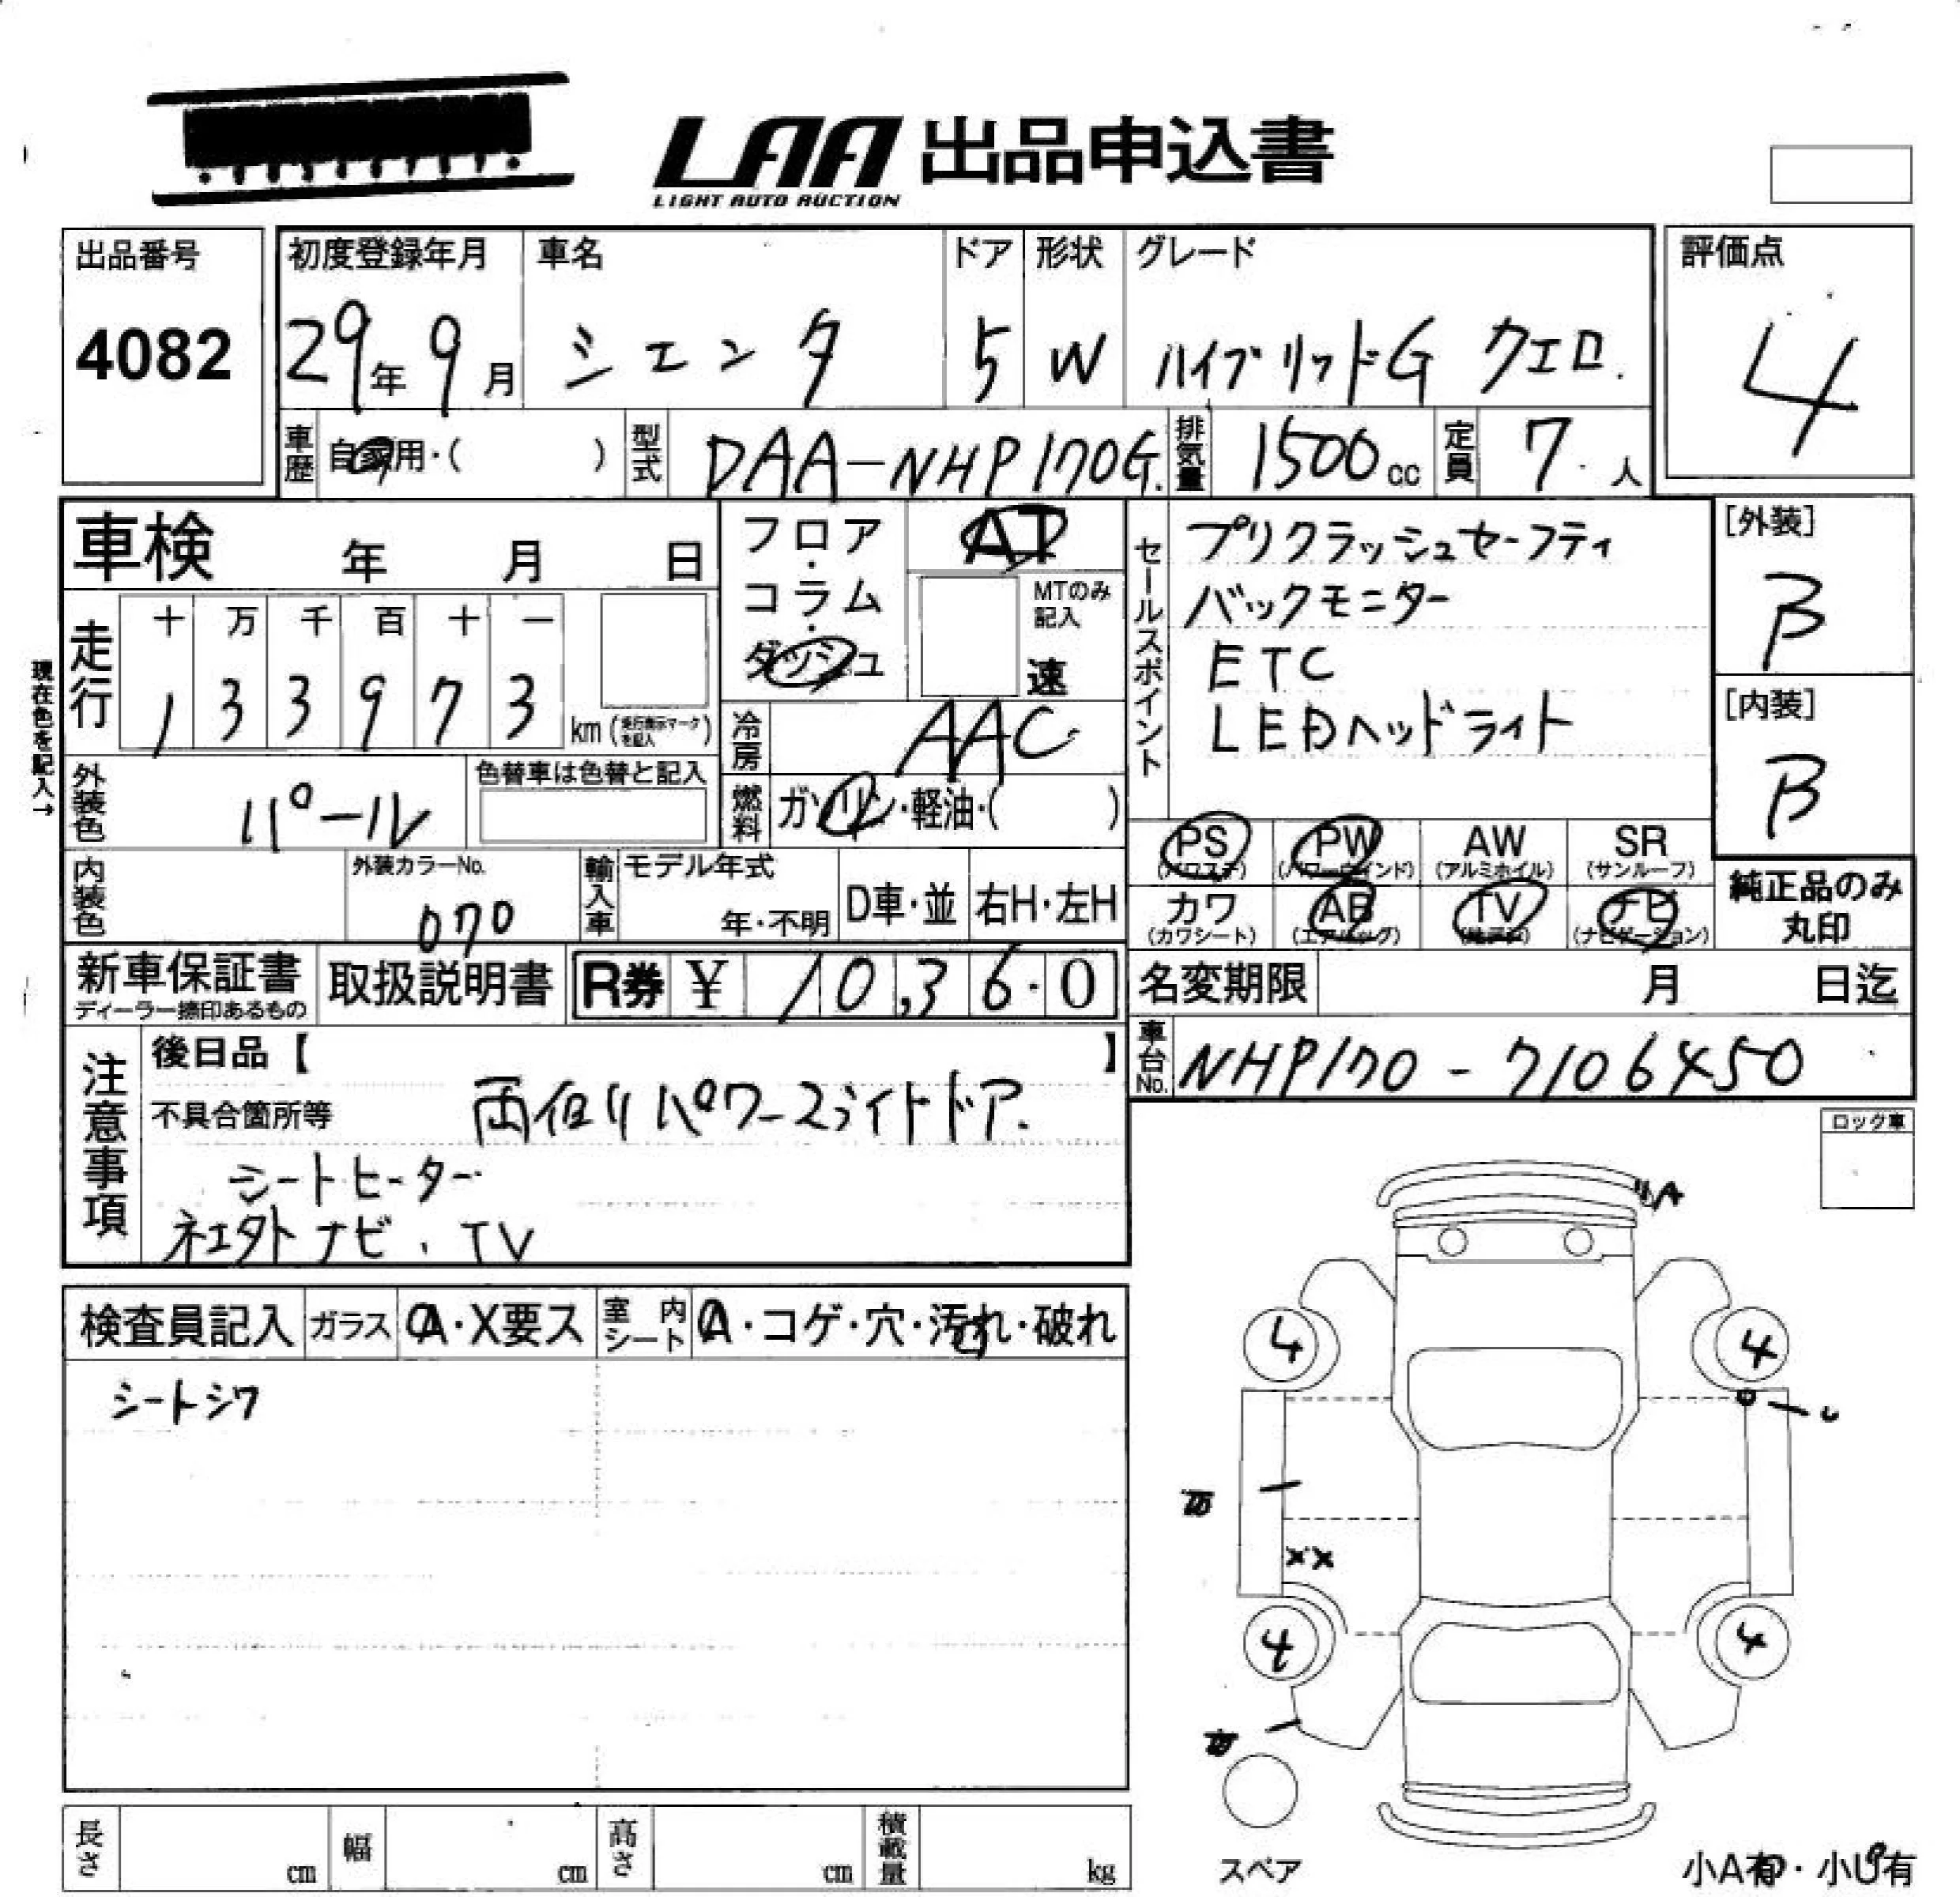 LAA 出品申込書
LIGHT AUTO AUCTION
出品番号
4082
初度登録年月
29年 9月
車名
シエンタ
ドア
5
形状
W
グレード
ハイブリッドG クエロ.
評価点
4
車歴
自家用・( )
型式
DAA-NHP170G.
排気量
1500 cc
定員
7 人
車検 年 月 日
フロア・コラム・ダッシュ
AT
MTのみ記入
速
セールスポイント
プリクラッシュセーフティ
バックモニター
ETC
LEDヘッドライト
[外装]
B
[内装]
B
現在色を記入→
走行
十 万 千 百 十 一
1 3 3 9 7 3
km (走行表示マークを記入)
冷房
AAC
外装色
パール
色替車は色替と記入
燃料
ガソリン・軽油・( )
PS
(パワステ)
PW
(パワーウインド)
AW
(アルミホイル)
SR
(サンルーフ)
カワ
(カワシート)
AB
(エアバッグ)
TV
(テレビ)
ナビ
(ナビゲーション)
純正品のみ
丸印
内装色
外装カラーNo.
070
輸入車
モデル年式
年・不明
D車・並
右H・左H
新車保証書
ディーラー捺印あるもの
取扱説明書
R券 ¥ 10,36・0
名変期限 月 日迄
車台No.
NHP170-7106450
注意事項
後日品【 】
不具合箇所等
両側パワースライドドア.
シートヒーター
社外ナビ、TV
ロック車
検査員記入
ガラス
A・X要ス
室内シート
A・コゲ・穴・汚れ・破れ
シートシワ
A
4
4
U
XX
4
4
スペア
小A有・小U有
長さ cm
幅 cm
高さ cm
積載量 kg